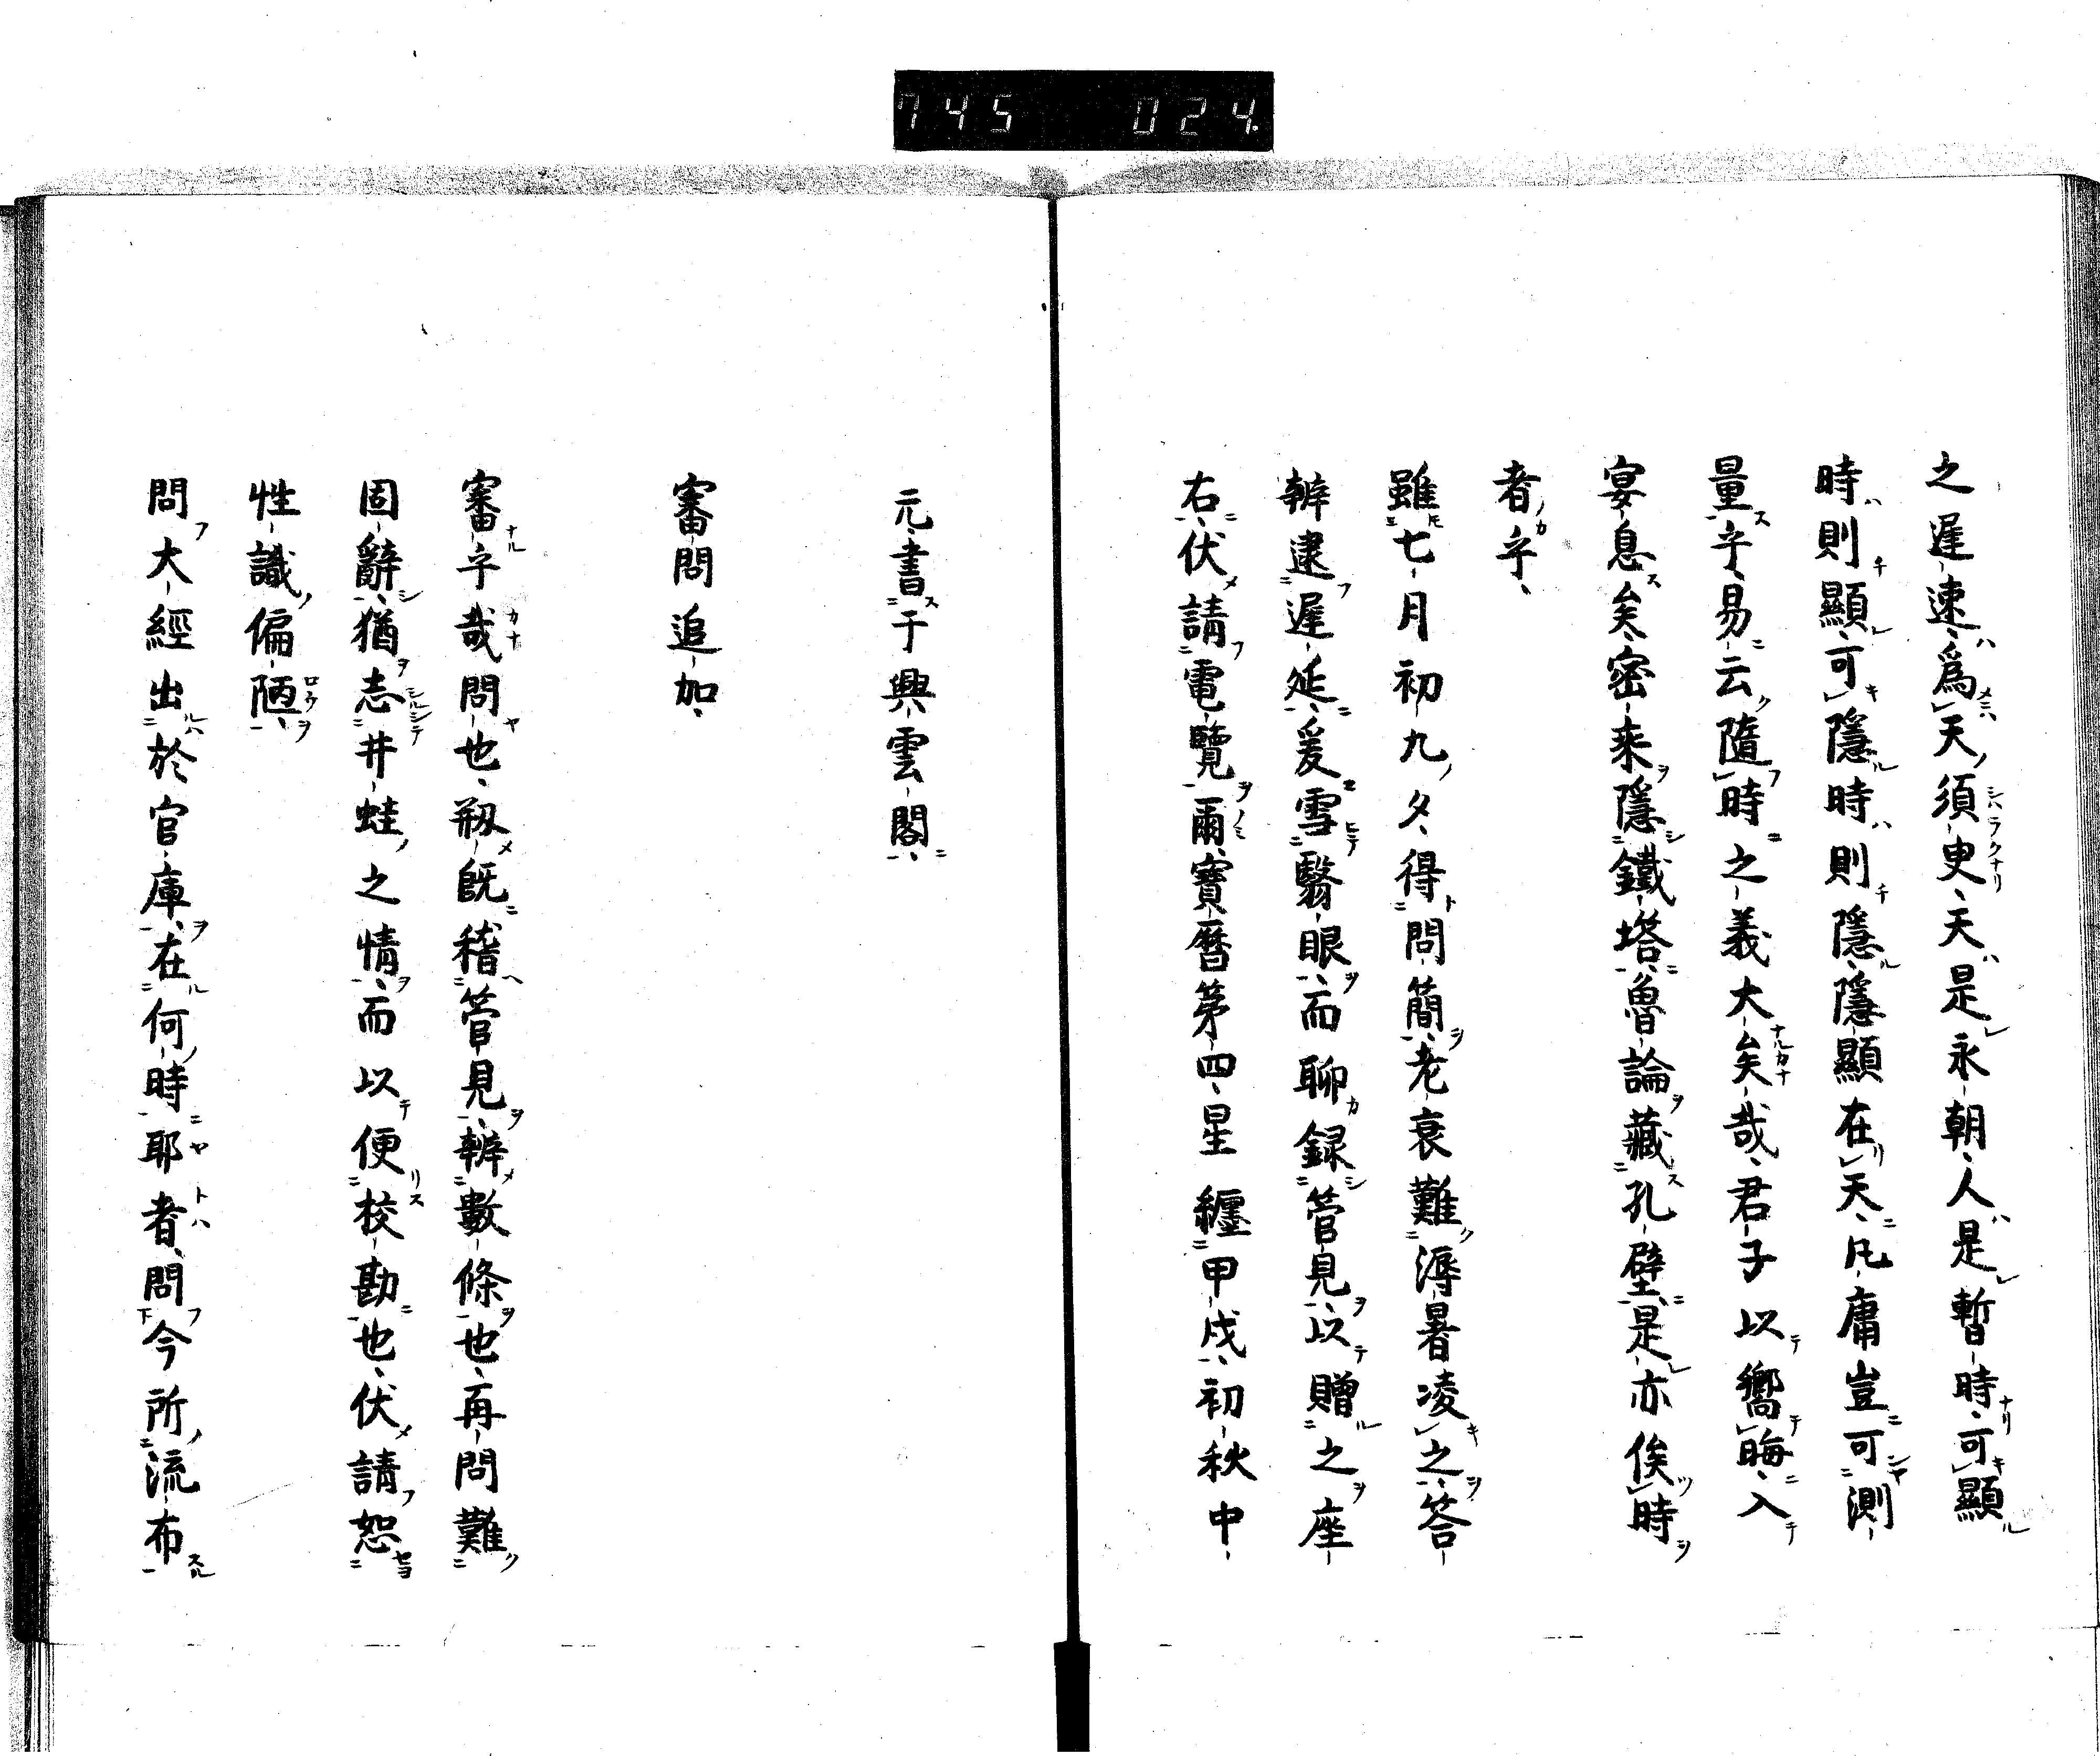 745 024
之遲速、爲天須臾、天是永朝、人是暫時、可顯
時則顯、可隱時則隱、隱顯在天、凡庸豈可測
量乎、易云隨時之義大矣哉、君子以嚮晦入
宴息矣、密來隱鐵塔、魯論藏孔壁、是亦俟時
者乎、
雖七月初九夕、得問簡、老衰難溽暑凌之、答
辨逮遲延、爰雪翳眼、而聊録管見、以贈之座
右、伏請電覽爾、寶暦第四、星纏甲戌、初秋中
元、書于興雲閣、
審問追加、
審乎哉問也、剏既稽管見、辨數條也、再問難
固辭、猶志井蛙之情、而以便校勘也、伏請恕
性識偏陋、
問大經出於官庫、在何時耶者、問今所流布